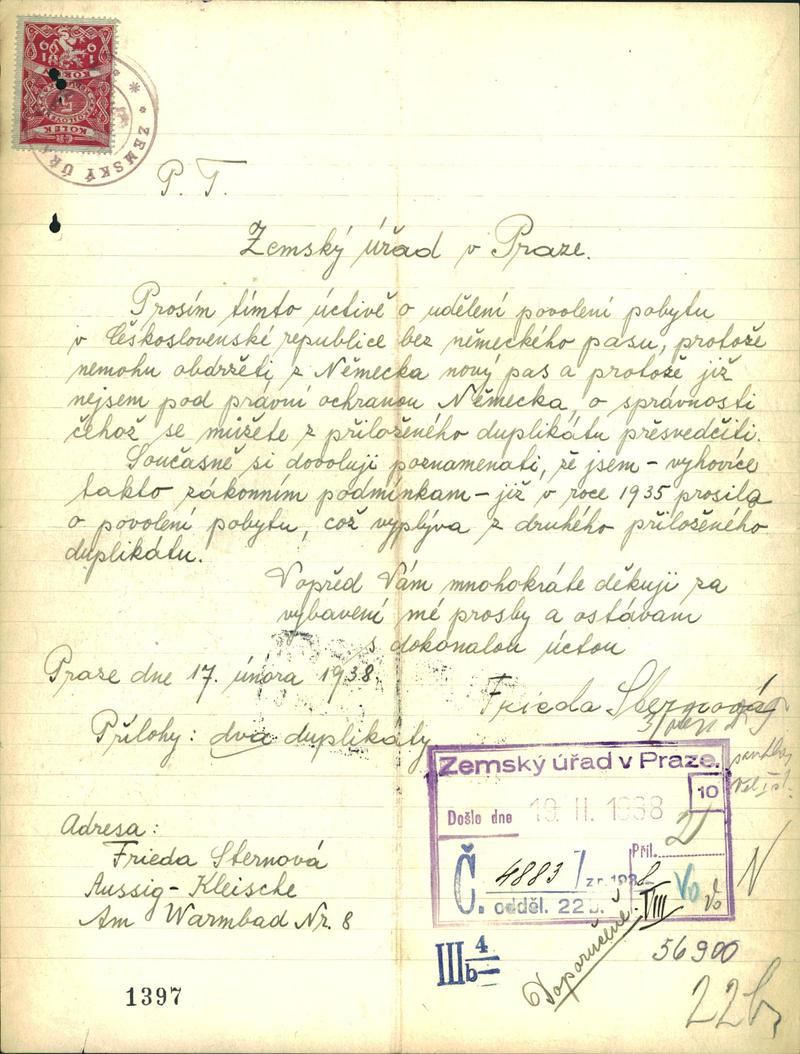 ZEMSKÝ ÚŘA
KOLEK
P. T.
Zemský úřad v Praze.
Prosím tímto úctivě o udělení povolení pobytu
v Československé republice bez německého pasu, protože
nemohu obdržeti z Německa nový pas a protože již
nejsem pod právní ochranou Německa, o správnosti
čehož se můžete z přiloženého duplikátu přesvědčiti.
Současně si dovoluji poznamenati, že jsem – vyhovíce
takto zákonním podmínkam – již v roce 1935 prosila
o povolení pobytu, což vyplývá z druhého přiloženého
duplikátu.
Vopřed Vám mnohokráte děkuji za
vybavení mé prosby a ostávam
s dokonalou úctou
Praze dne 17. února 1938.
Frieda Sternová
Přílohy: dva duplikáty
Zemský úřad v Praze.
10
Došlo dne 19. II. 1938
2
Příl.
Č. 4883 / z r. 193
odděl. 22b.
VIII
N
Adresa:
Frieda Sternová
Aussig-Kleische
Am Warmbad Nr. 8
III 4
b
Doporučeně.
56900
22b
1397